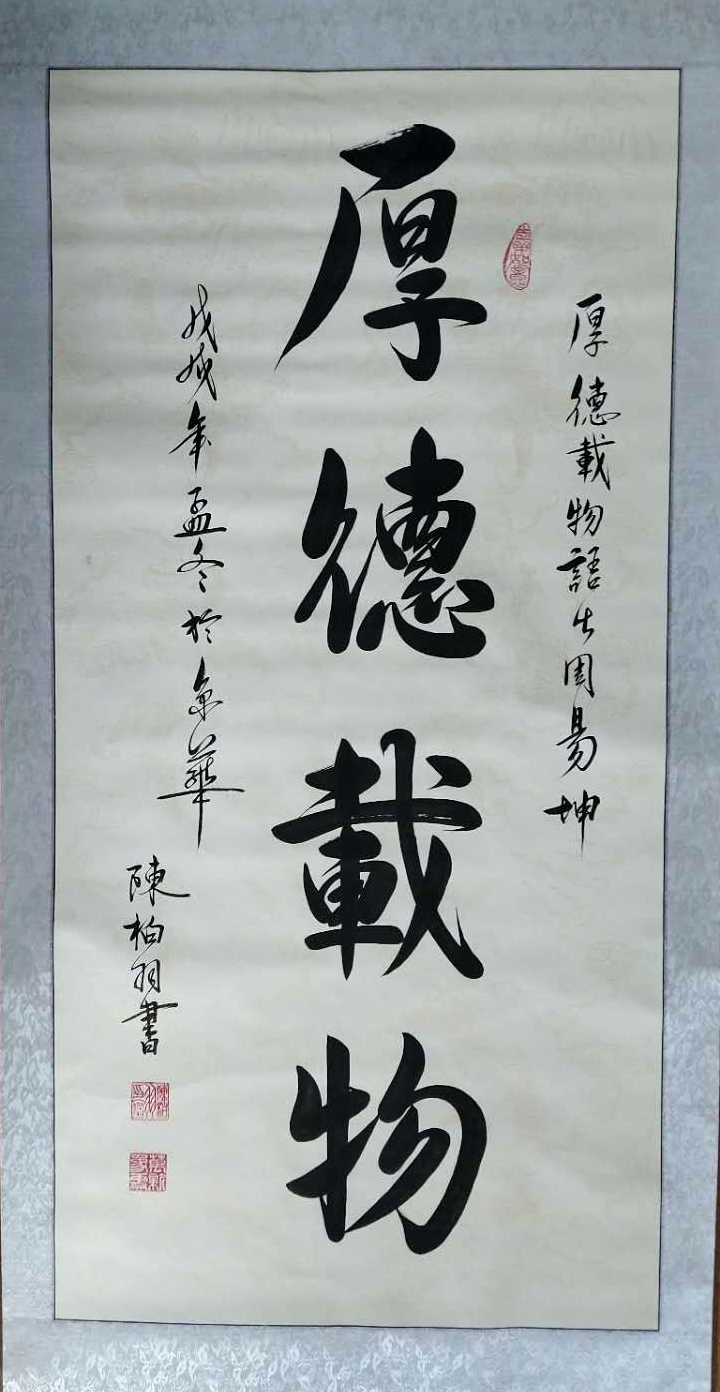 厚德載物語出周易坤
厚德載物
戊戌年孟冬於京華
陳柏羽書